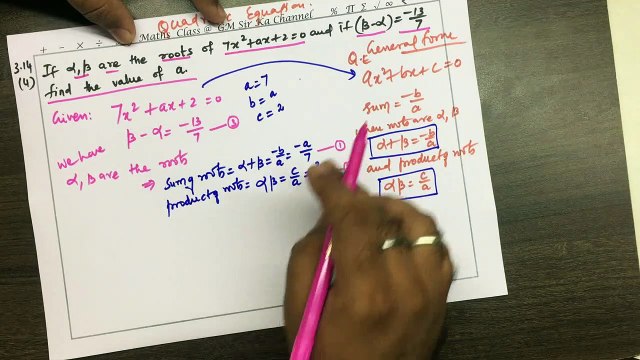 Quadratic Equation
+ − × ÷ Maths Class @ GM Sir Ka Channel % Π Σ √ ∞
3.14 If α, β are the roots of 7x²+ax+2=0 and if (β-α) = -13/7
(4) find the value of a.
Given: 7x²+ax+2=0
β-α = -13/7 —③
we have
α, β are the roots
a=7
b=a
c=2
⇒ Sum of roots = α+β = -b/a = -a/7 —①
product of roots = αβ = c/a =
Q.E General form
ax²+bx+c=0
sum = -b/a
roots are α, β
α+β = -b/a
and product of roots
αβ = c/a